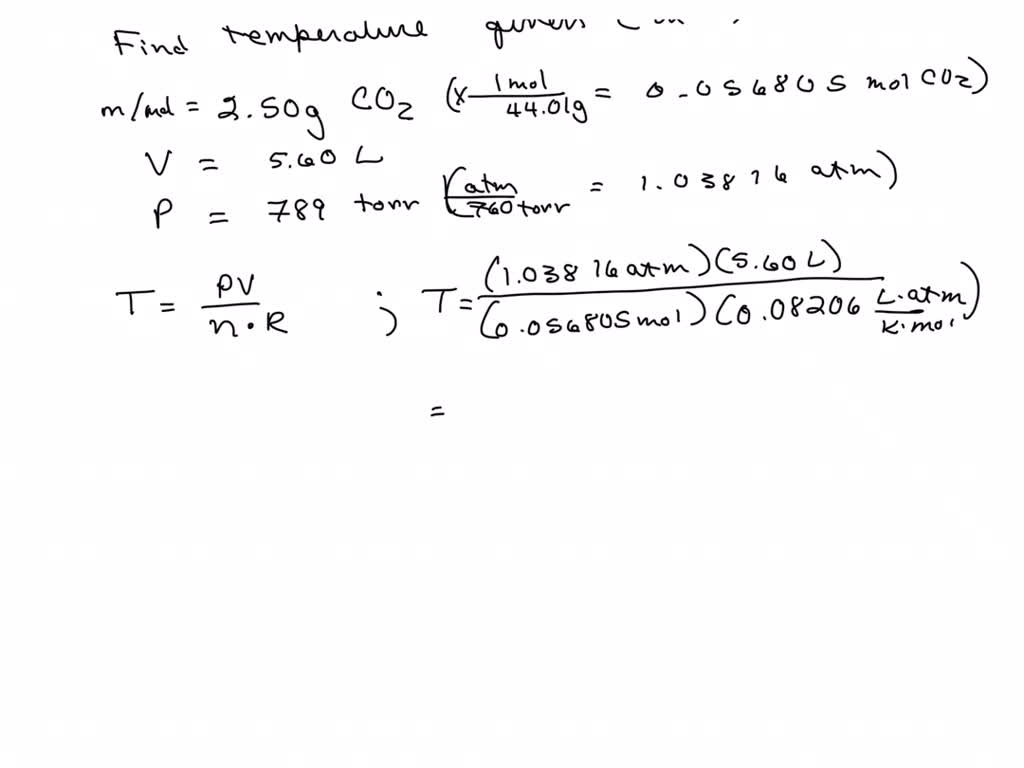 Find temperature
m/mol = 2.50g CO2 (x 1 mol / 44.01g = 0.056805 mol CO2)
V = 5.60 L
P = 789 torr (atm / 760 torr = 1.03816 atm)
T = PV / n·R ; T = (1.03816 atm)(5.60 L) / (0.056805 mol)(0.08206 L·atm / K·mol)
=